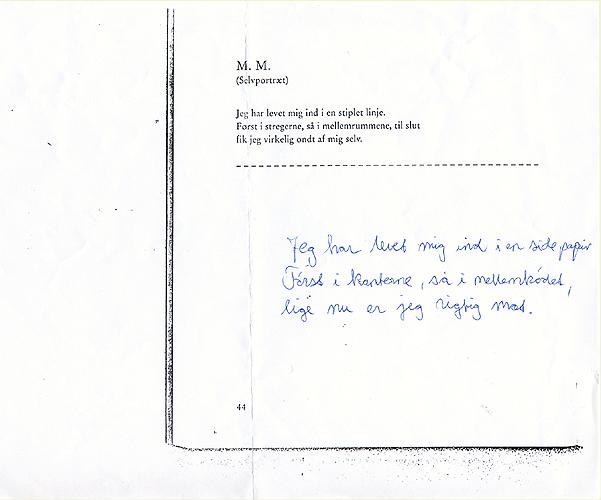 M. M.
(Selvportræt)
Jeg har levet mig ind i en stiplet linje.
Først i stregerne, så i mellemrummene, til slut
fik jeg virkelig ondt af mig selv.
Jeg har levet mig ind i en side papir
Først i kanterne, så i mellemkødet,
lige nu er jeg rigtig mæt.
44